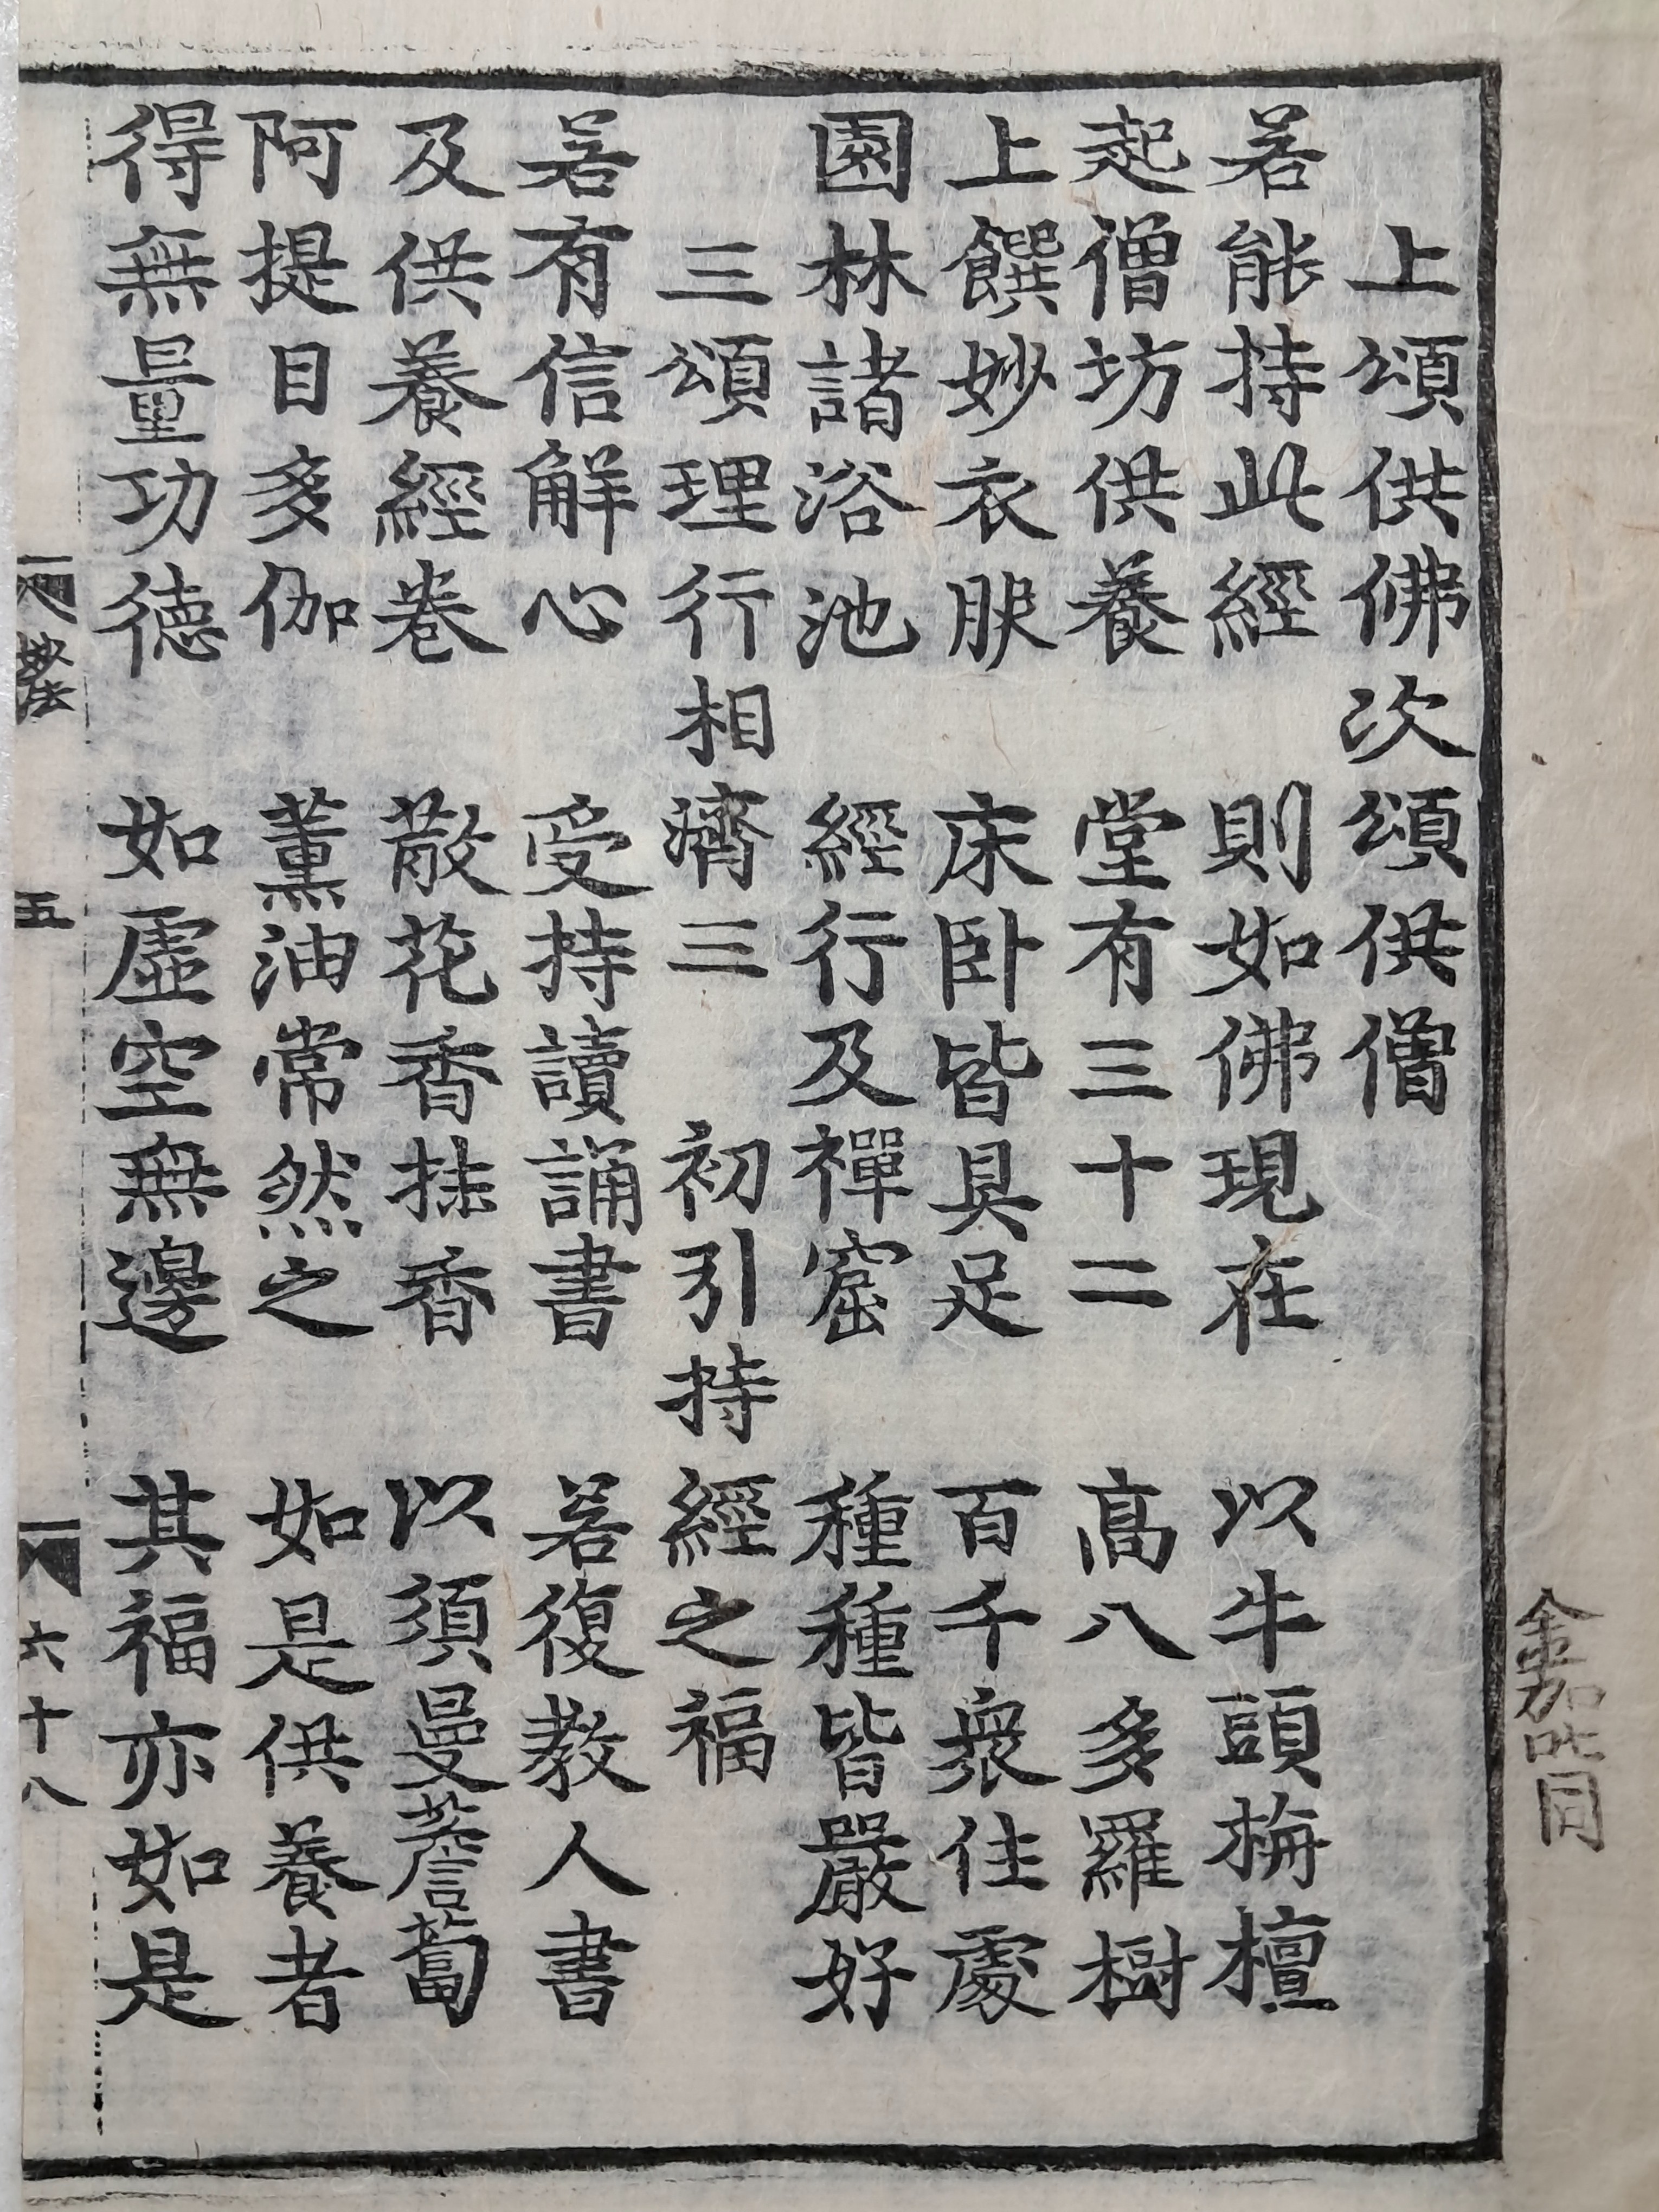 上頌供佛次頌供僧
若能持此經　則如佛現在　以牛頭栴檀
起僧坊供養　堂有三十二　高八多羅樹
上饌妙衣服　床臥皆具足　百千衆住處
園林諸浴池　經行及禪窟　種種皆嚴好
三頌理行相濟三　初引持經之福
若有信解心　受持讀誦書　若復教人書
及供養經卷　散花香抹香　以須曼薝蔔
阿提目多伽　薰油常然之　如是供養者
得無量功德　如虛空無邊　其福亦如是
五　六十八